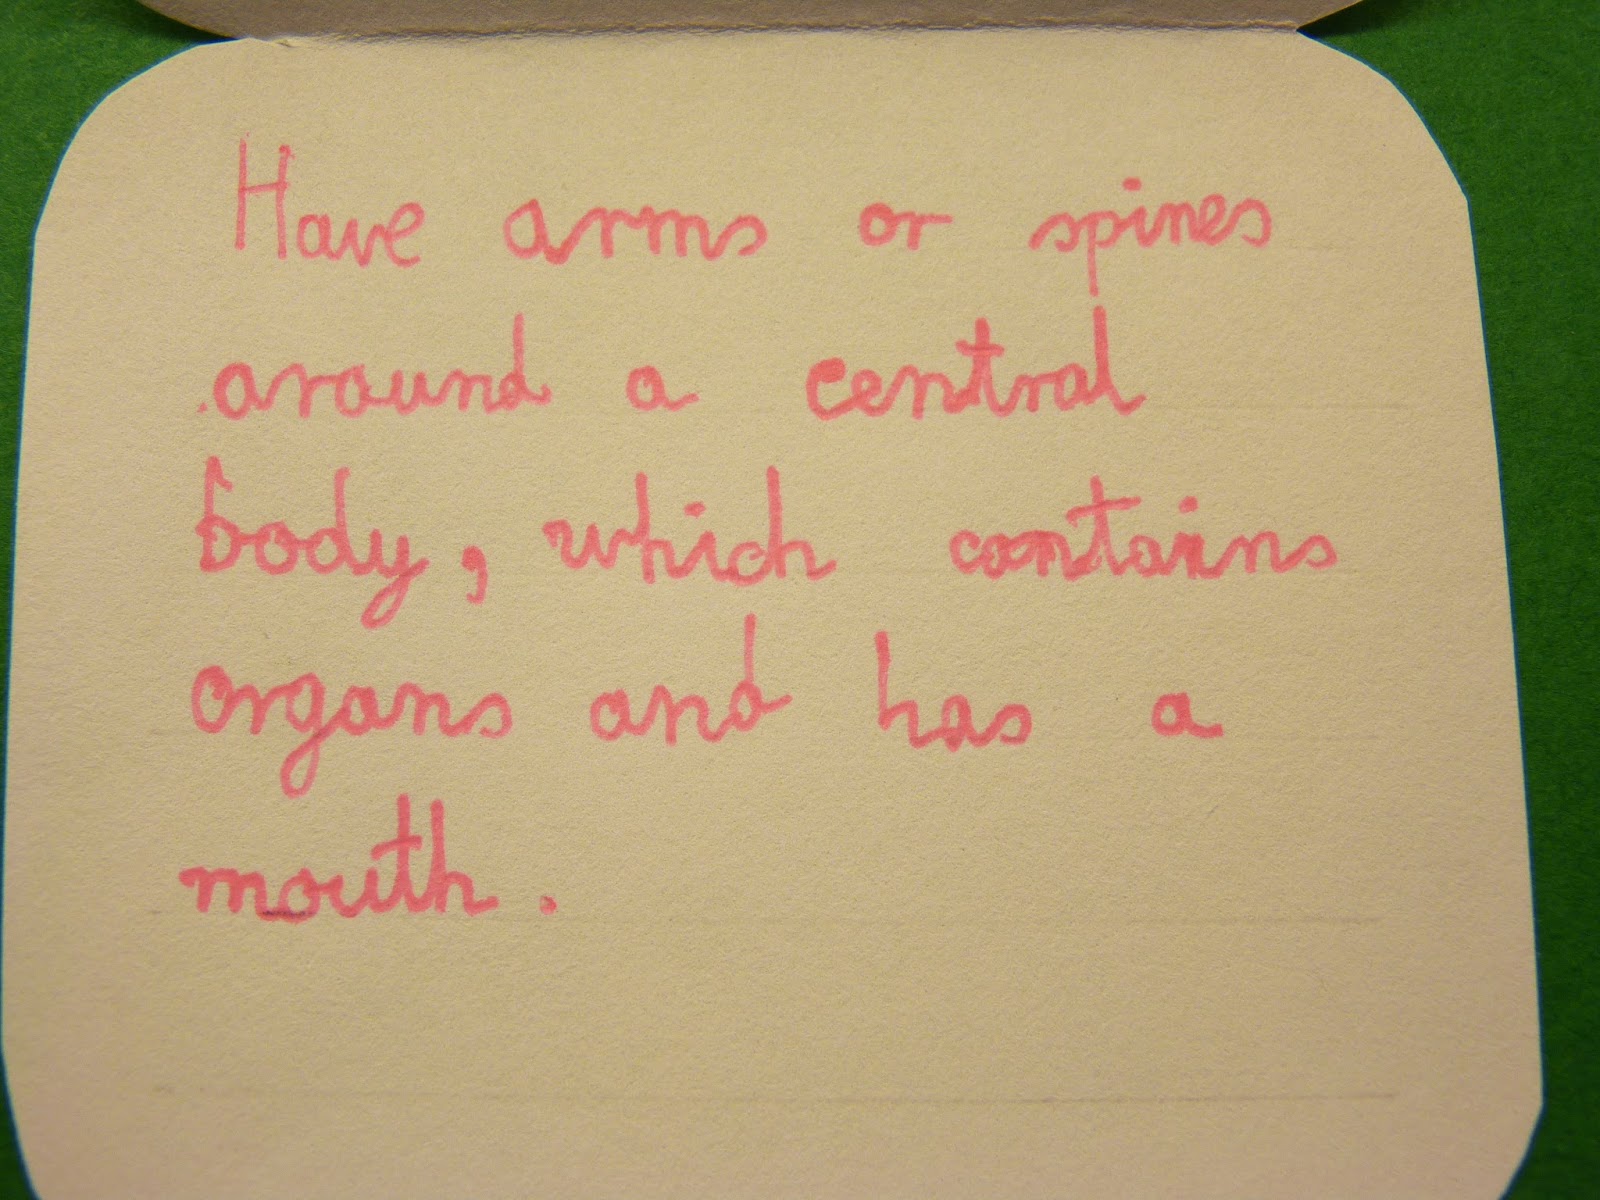 Have arms or spines
around a central
body, which contains
organs and has a
mouth.